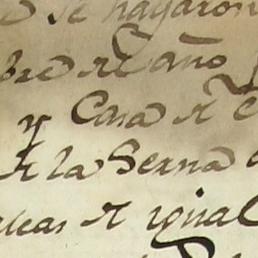 se hayaron
bre de año
y Casa de
de la Serna
de igual